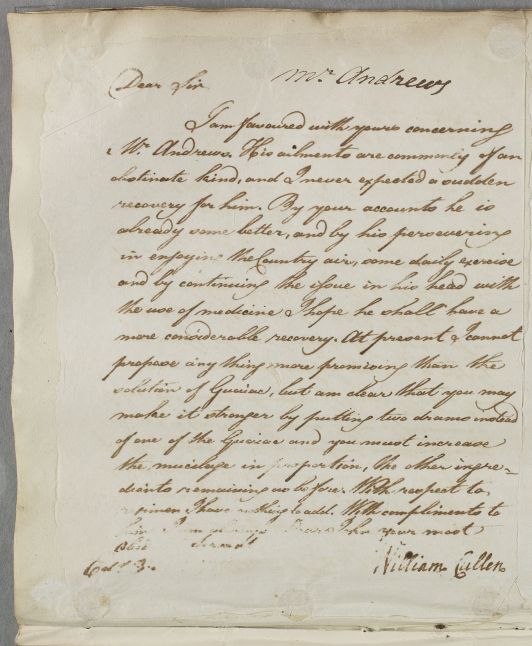 Mr. Andrews
Dear Sir
I am favoured with yours concerning
Mr. Andrews. His ailments are commonly of an
obstinate kind, and I never expected a sudden
recovery for him. By your accounts he is
already some better, and by his persevering
in enjoying the Country air, some daily exercise
and by continuing the issue in his head with
the use of medicine I hope he shall have a
more considerable recovery. At present I cannot
propose any thing more promising than the
solution of Guaiac, but am clear that you may
make it stronger by putting two drams instead
of one of the Guaiac and you must increase
the mucilage in proportion, the other ingre-
dients remaining as before. With respect to
regimen I have nothing to add. With compliments to
him I am always Dear John your most
Obed. Servt.
William Cullen